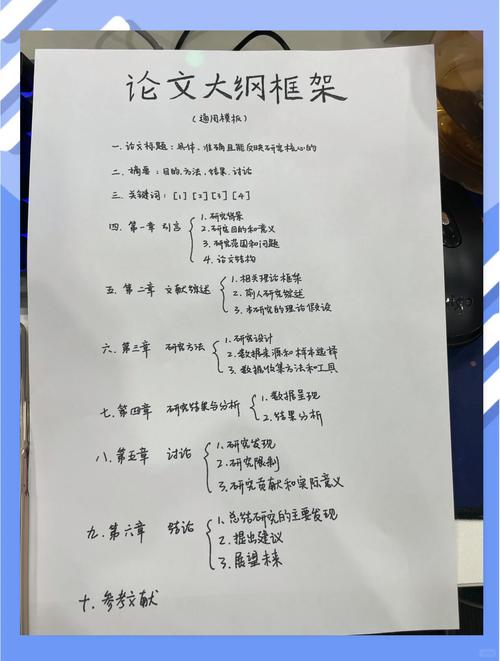 论文大纲框架
(通用模板)
一.论文标题:具体、准确且能反映研究核心的
二.摘要:目的,方法,结果,讨论
三.关键词:[1][2][3][4]
四.第一章 引言
1.研究背景
2.研究目的和意义
3.研究范围和问题
4.论文结构
五.第二章 文献综述
1.相关理论框架
2.前人研究综述
3.本研究的理论假设
六.第三章 研究方法
1.研究设计
2.数据来源和样本选择
3.数据收集方法和工具
七.第四章 研究结果与分析
1.数据呈现
2.结果分析
八.第五章 讨论
1.研究发现
2.研究限制
3.研究贡献和实际意义
九.第六章 结论
1.总结研究的主要发现
2.提出建议
3.展望未来
十.参考文献